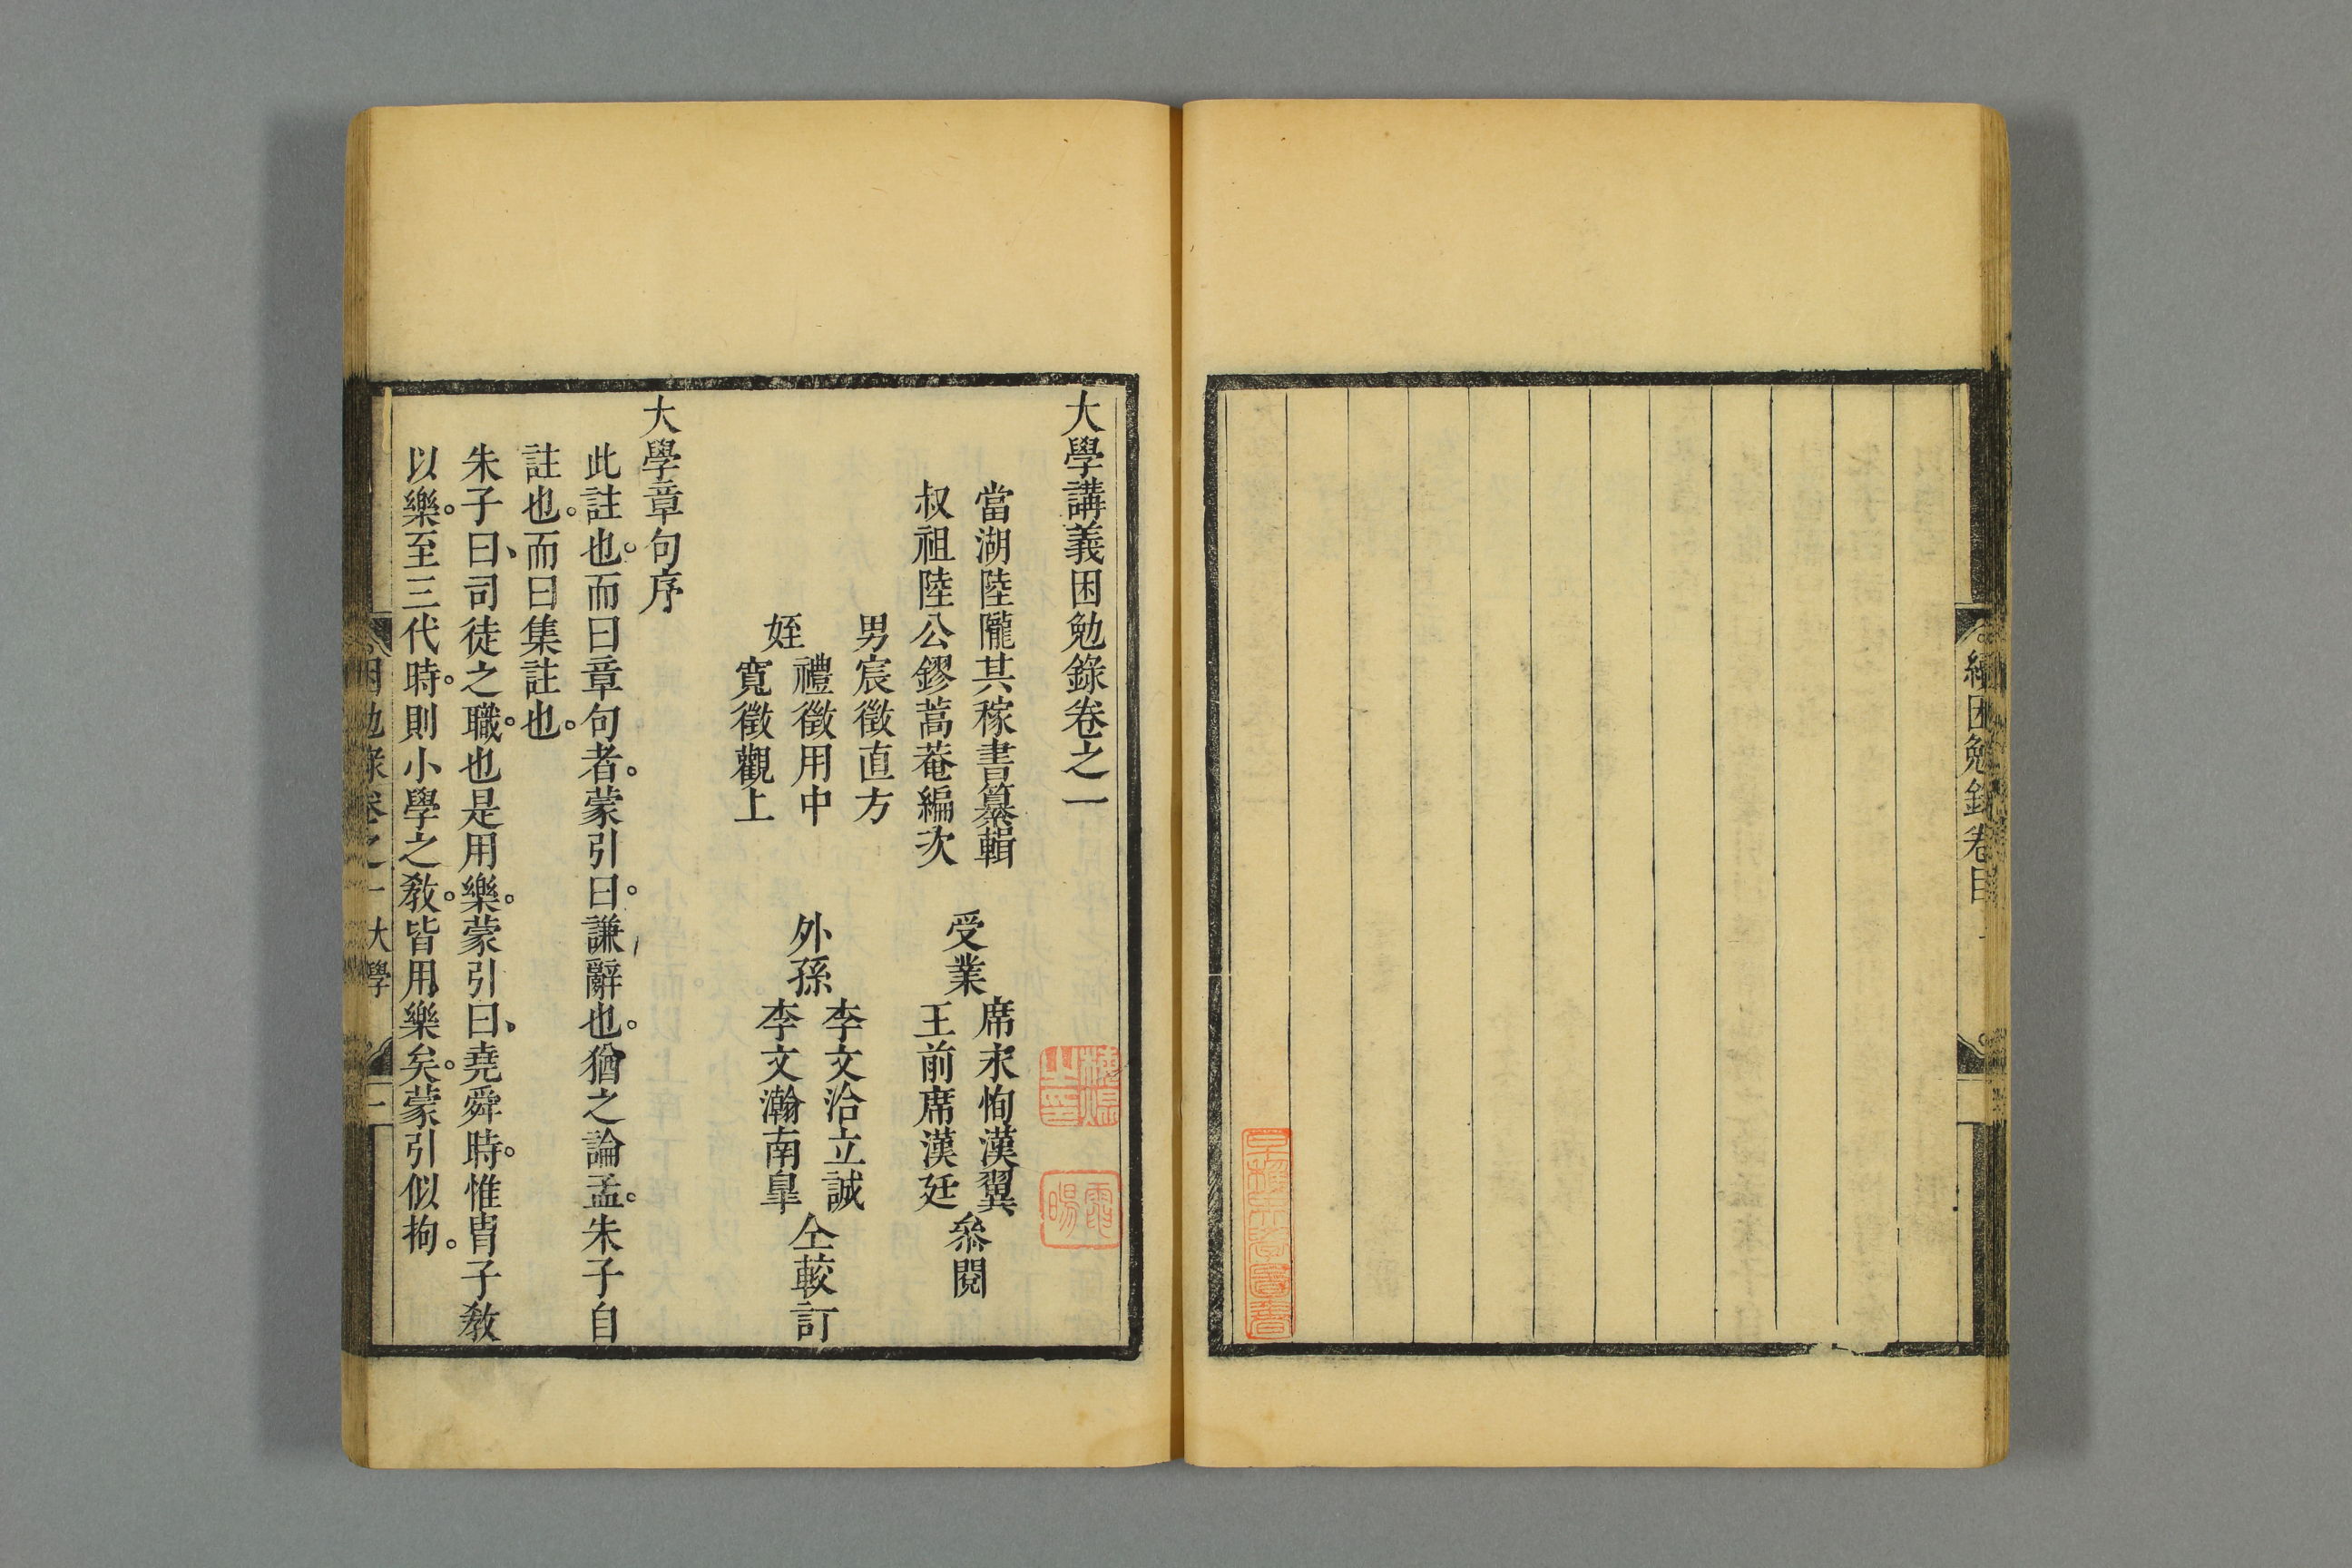 續困勉錄卷目
大學講義困勉錄卷之一
當湖陸隴其稼書纂輯
叔祖陸公鏐蒿菴編次
受業
席永恂漢翼
王前席漢廷
叅閱
男宸徵直方
姪
禮徵用中
寬徵觀上
外孫
李文洽立誠
李文瀚南臯
仝較訂
大學章句序
此註也。而曰章句者。蒙引曰。謙辭也。猶之論孟。朱子自
註也。而曰集註也。
朱子曰、司徒之職。也是用樂。蒙引曰、堯舜時。惟胄子教
以樂。至三代時。則小學之教。皆用樂矣。蒙引似拘。
困勉錄卷之一 大學 一